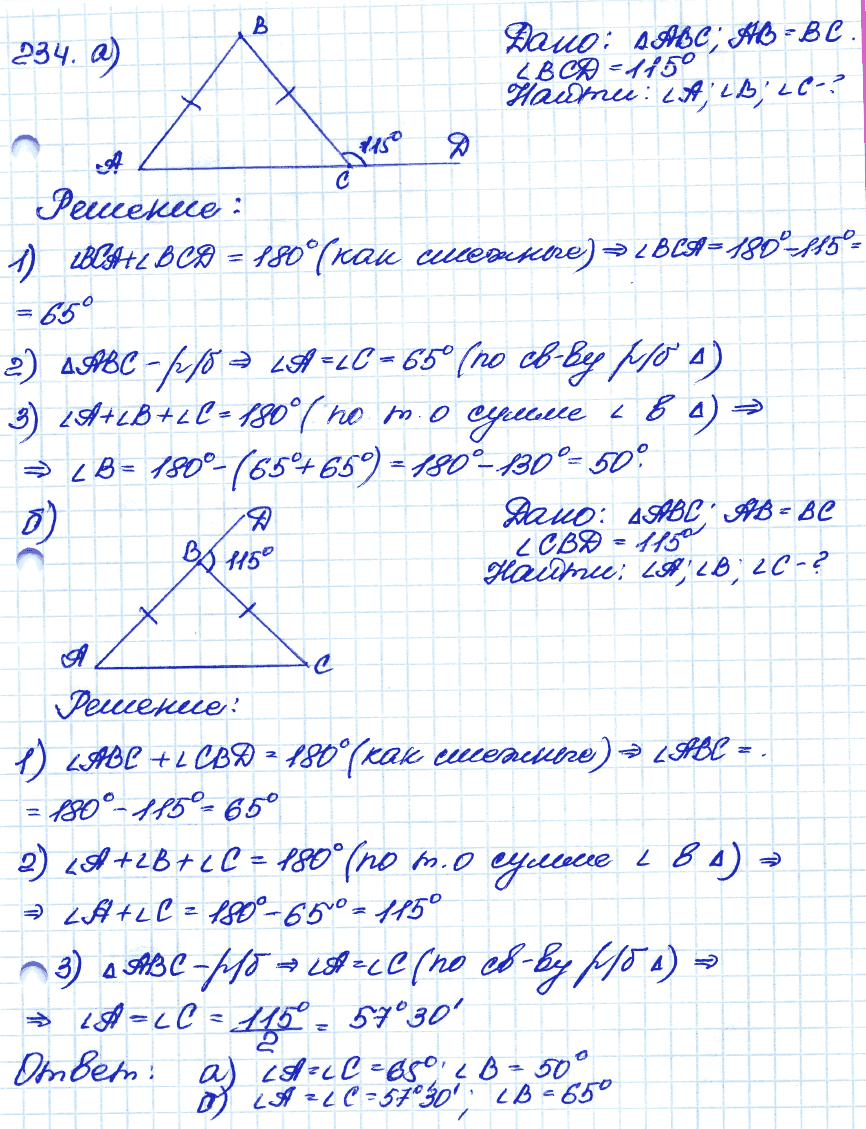 234. а)
B
Дано: △ABC; AB = BC.
∠BCD = 115°
Найти: ∠A; ∠B; ∠C - ?
A
C
115°
D
Решение:
1) ∠BCA+∠BCD = 180° (как смежные) ⇒ ∠BCA = 180° - 115° =
= 65°
2) △ABC - р/б ⇒ ∠A = ∠C = 65° (по св-ву р/б △)
3) ∠A+∠B+∠C = 180° (по т. о сумме ∠ в △) ⇒
⇒ ∠B = 180° - (65° + 65°) = 180° - 130° = 50°.
б)
D
B
115°
Дано: △ABC; AB = BC
∠CBD = 115°
Найти: ∠A; ∠B; ∠C - ?
A
C
Решение:
1) ∠ABC + ∠CBD = 180° (как смежные) ⇒ ∠ABC = .
= 180° - 115° = 65°
2) ∠A + ∠B + ∠C = 180° (по т. о сумме ∠ в △) ⇒
⇒ ∠A + ∠C = 180° - 65° = 115°
3) △ABC - р/б ⇒ ∠A = ∠C (по св-ву р/б △) ⇒
⇒ ∠A = ∠C = 115°/2 = 57°30'
Ответ: а) ∠A = ∠C = 65°; ∠B = 50°
б) ∠A = ∠C = 57°30'; ∠B = 65°